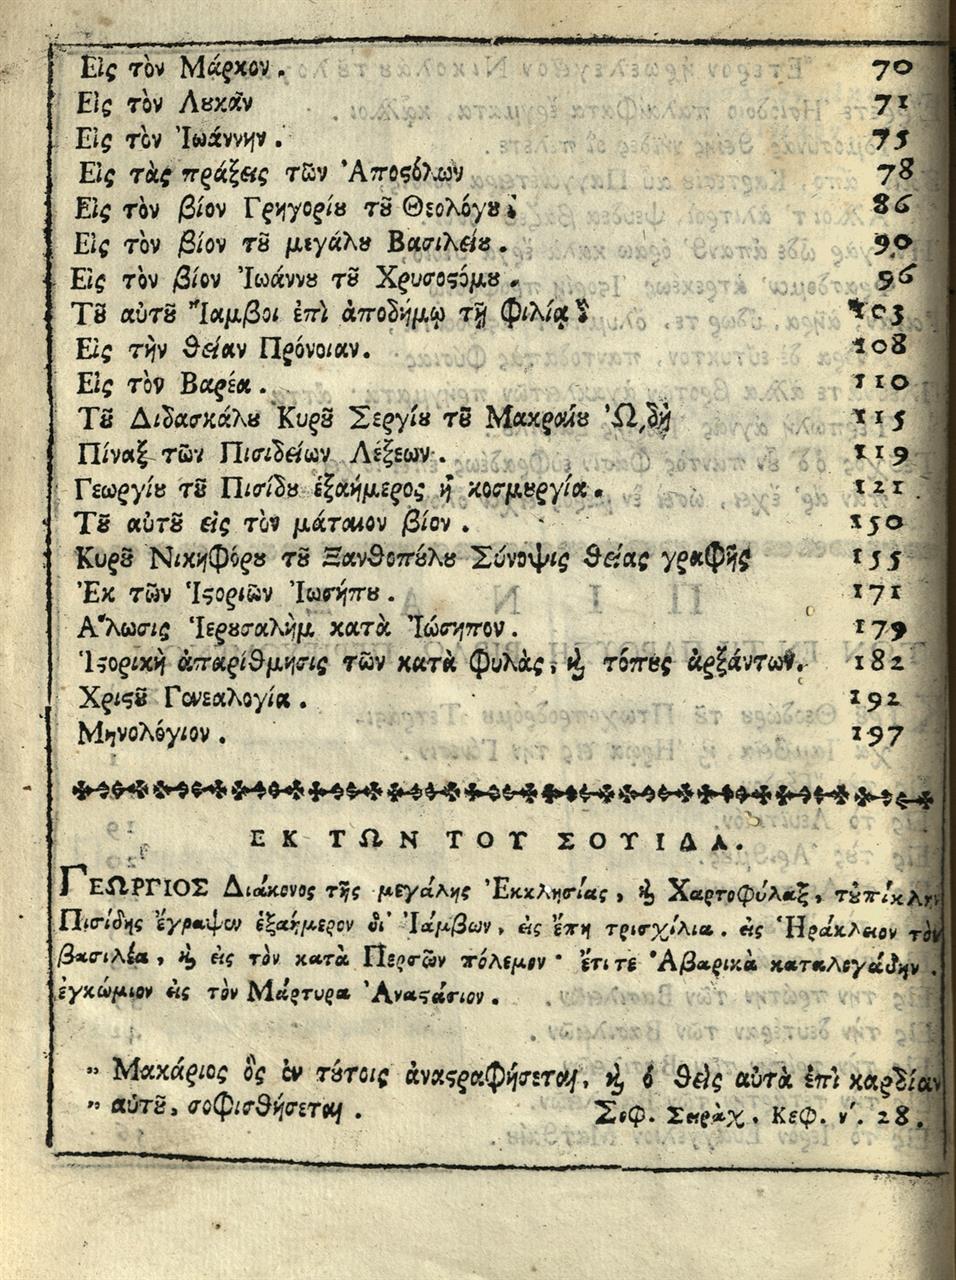 Εἰς τὸν Μάρκον. 70
Εἰς τὸν Λȣκᾶν 71
Εἰς τὸν Ἰωάννην. 75
Εἰς τὰς πράξεις τῶν Ἀποϛόλων 78
Εἰς τὸν βίον Γρηγορίȣ τȣ͂ Θεολόγȣ. 86
Εἰς τὸν βίον τȣ͂ μεγάλȣ Βασιλείȣ. 90
Εἰς τὸν βίον Ἰωάννȣ τȣ͂ Χρυσοϛόμȣ. 96
Τȣ͂ αὐτȣ͂ Ἴαμβοι ἐπὶ ἀποδήμῳ τῇ Φιλίᾳ 103
Εἰς τὴν θείαν Πρόνοιαν. 108
Εἰς τὸν Βαρέα. 110
Τȣ͂ Διδασκάλȣ Κυρȣ͂ Σεργίȣ τȣ͂ Μακραίȣ Ὠδὴ 115
Πίναξ τῶν Πισιδείων Λέξεων. 119
Γεωργίȣ τȣ͂ Πισίδȣ ἑξαήμερος ἢ κοσμȣργία. 121
Τȣ͂ αὐτȣ͂ εἰς τὸν μάταιον βίον. 150
Κυρȣ͂ Νικηφόρȣ τȣ͂ Ξανθοπȣ́λȣ Σύνοψις θείας γραφῆς 155
Ἐκ τῶν Ἱϛοριῶν Ἰωσήπȣ. 171
Ἅλωσις Ἱερȣσαλὴμ κατὰ Ἰώσηπον. 179
Ἱϛορικὴ ἀπαρίθμησις τῶν κατὰ φυλὰς, ϗ τόπȣς ἀρξάντων. 182
Χριϛȣ͂ Γενεαλογία. 192
Μηνολόγιον. 197
ΕΚ ΤΩΝ ΤΟΥ ΣΟΥΙΔΑ.
ΓΕΩΡΓΙΟΣ Διάκονος τῆς μεγάλης Ἐκκλησίας, ϗ Χαρτοφύλαξ, τȣ̓πίκλην
Πισίδης ἔγραψεν ἑξαήμερον δι' Ἰάμβων, εἰς ἔπη τρισχίλια. εἰς Ἡράκλειον τὸν
βασιλέα, ϗ εἰς τὸν κατὰ Περσῶν πόλεμον· ἔτι τε Ἀβαρικὰ καταλογάδην.
ἐγκώμιον εἰς τὸν Μάρτυρα Ἀναϛάσιον.
„ Μακάριος ὃς ἐν τȣ́τοις ἀναϛραφήσεται, ϗ ὁ θεὶς αὐτὰ ἐπὶ καρδίαν
„ αὐτȣ͂, σοφισθήσεται. Σοφ. Σειρὰχ. Κεφ. ν'. 28.